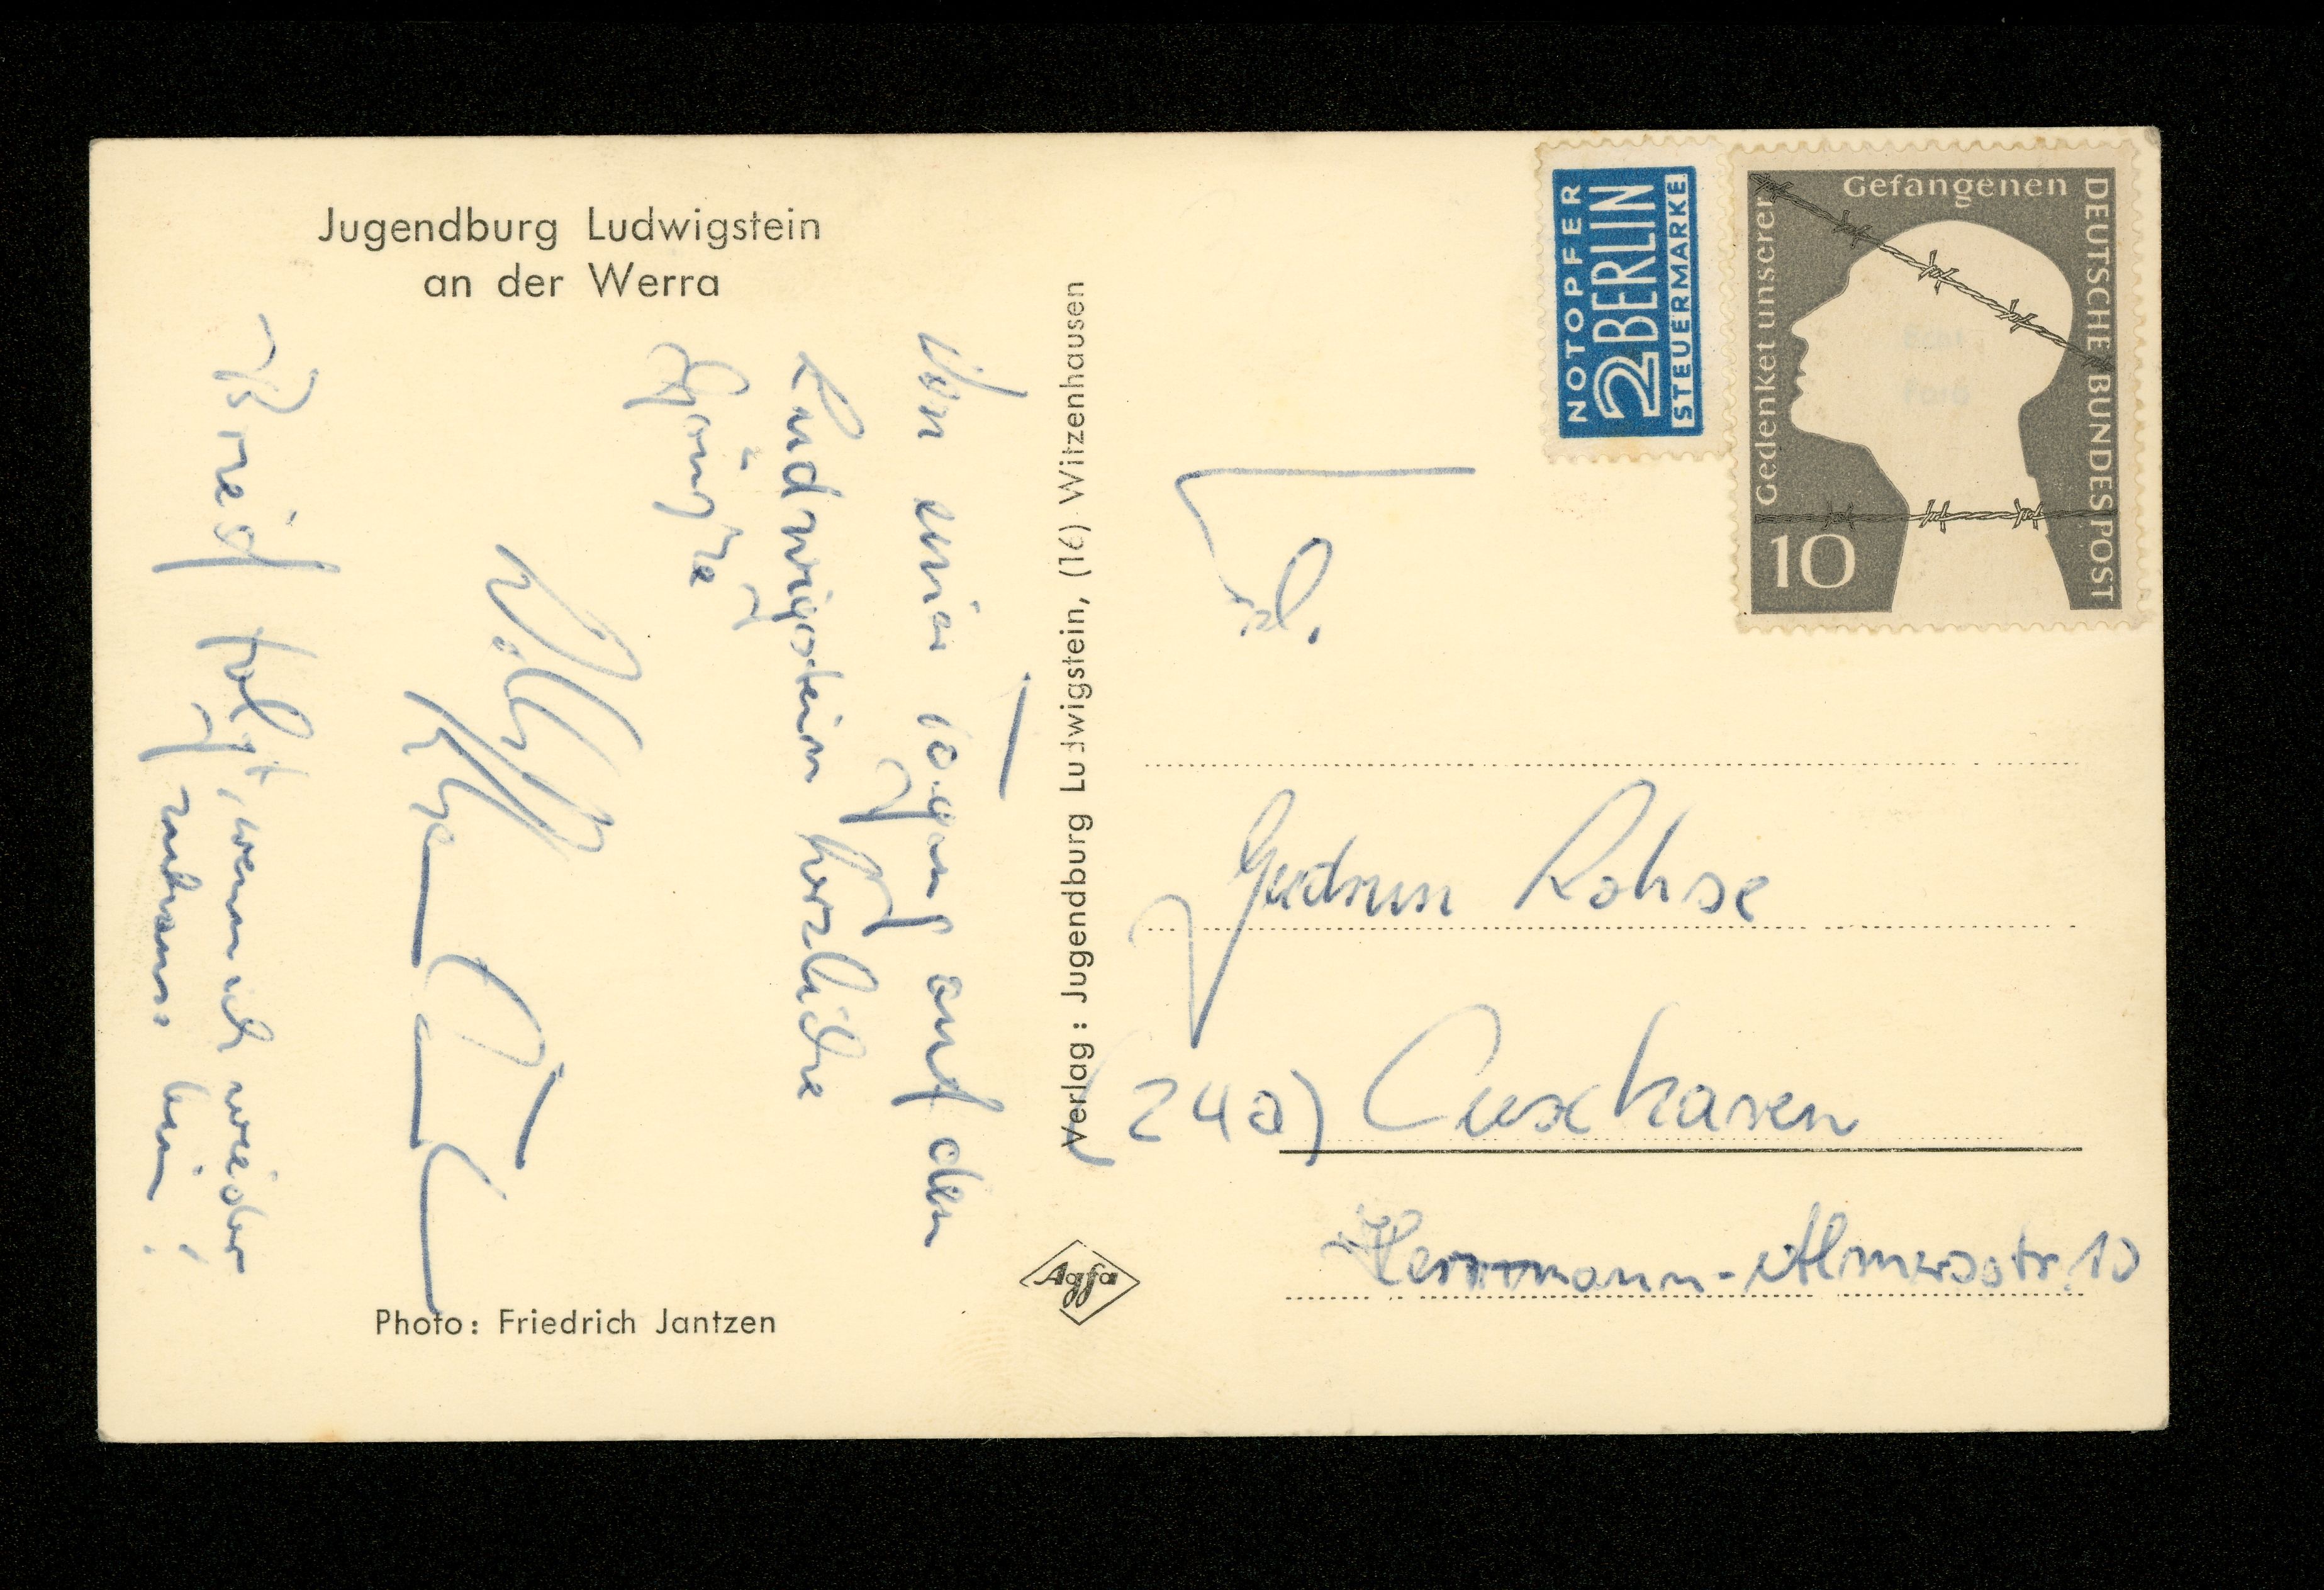 Jugendburg Ludwigstein
an der Werra
Von einer Tagung auf dem
Ludwigstein herzliche
Grüße
Brief folgt, wenn ich wieder
zuhause bin!
Photo: Friedrich Jantzen
Verlag: Jugendburg Ludwigstein, (16) Witzenhausen
Agfa
NOTOPFER
2 BERLIN
STEUERMARKE
Gedenket unserer
Gefangenen
DEUTSCHE BUNDESPOST
10
Gudrun Rohse
(24a) Cuxhaven
Herrmann-Almersstr. 10